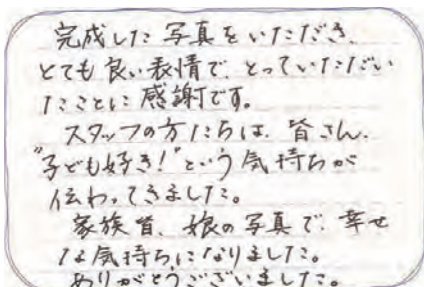 完成した写真をいただき、
とても良い表情で、とっていただい
たことに感謝です。
スタッフの方たちは、皆さん、
"子ども好き!"という気持ちが
伝わってきました。
家族皆、娘の写真で、幸せ
な気持ちになりました。
ありがとうございました。